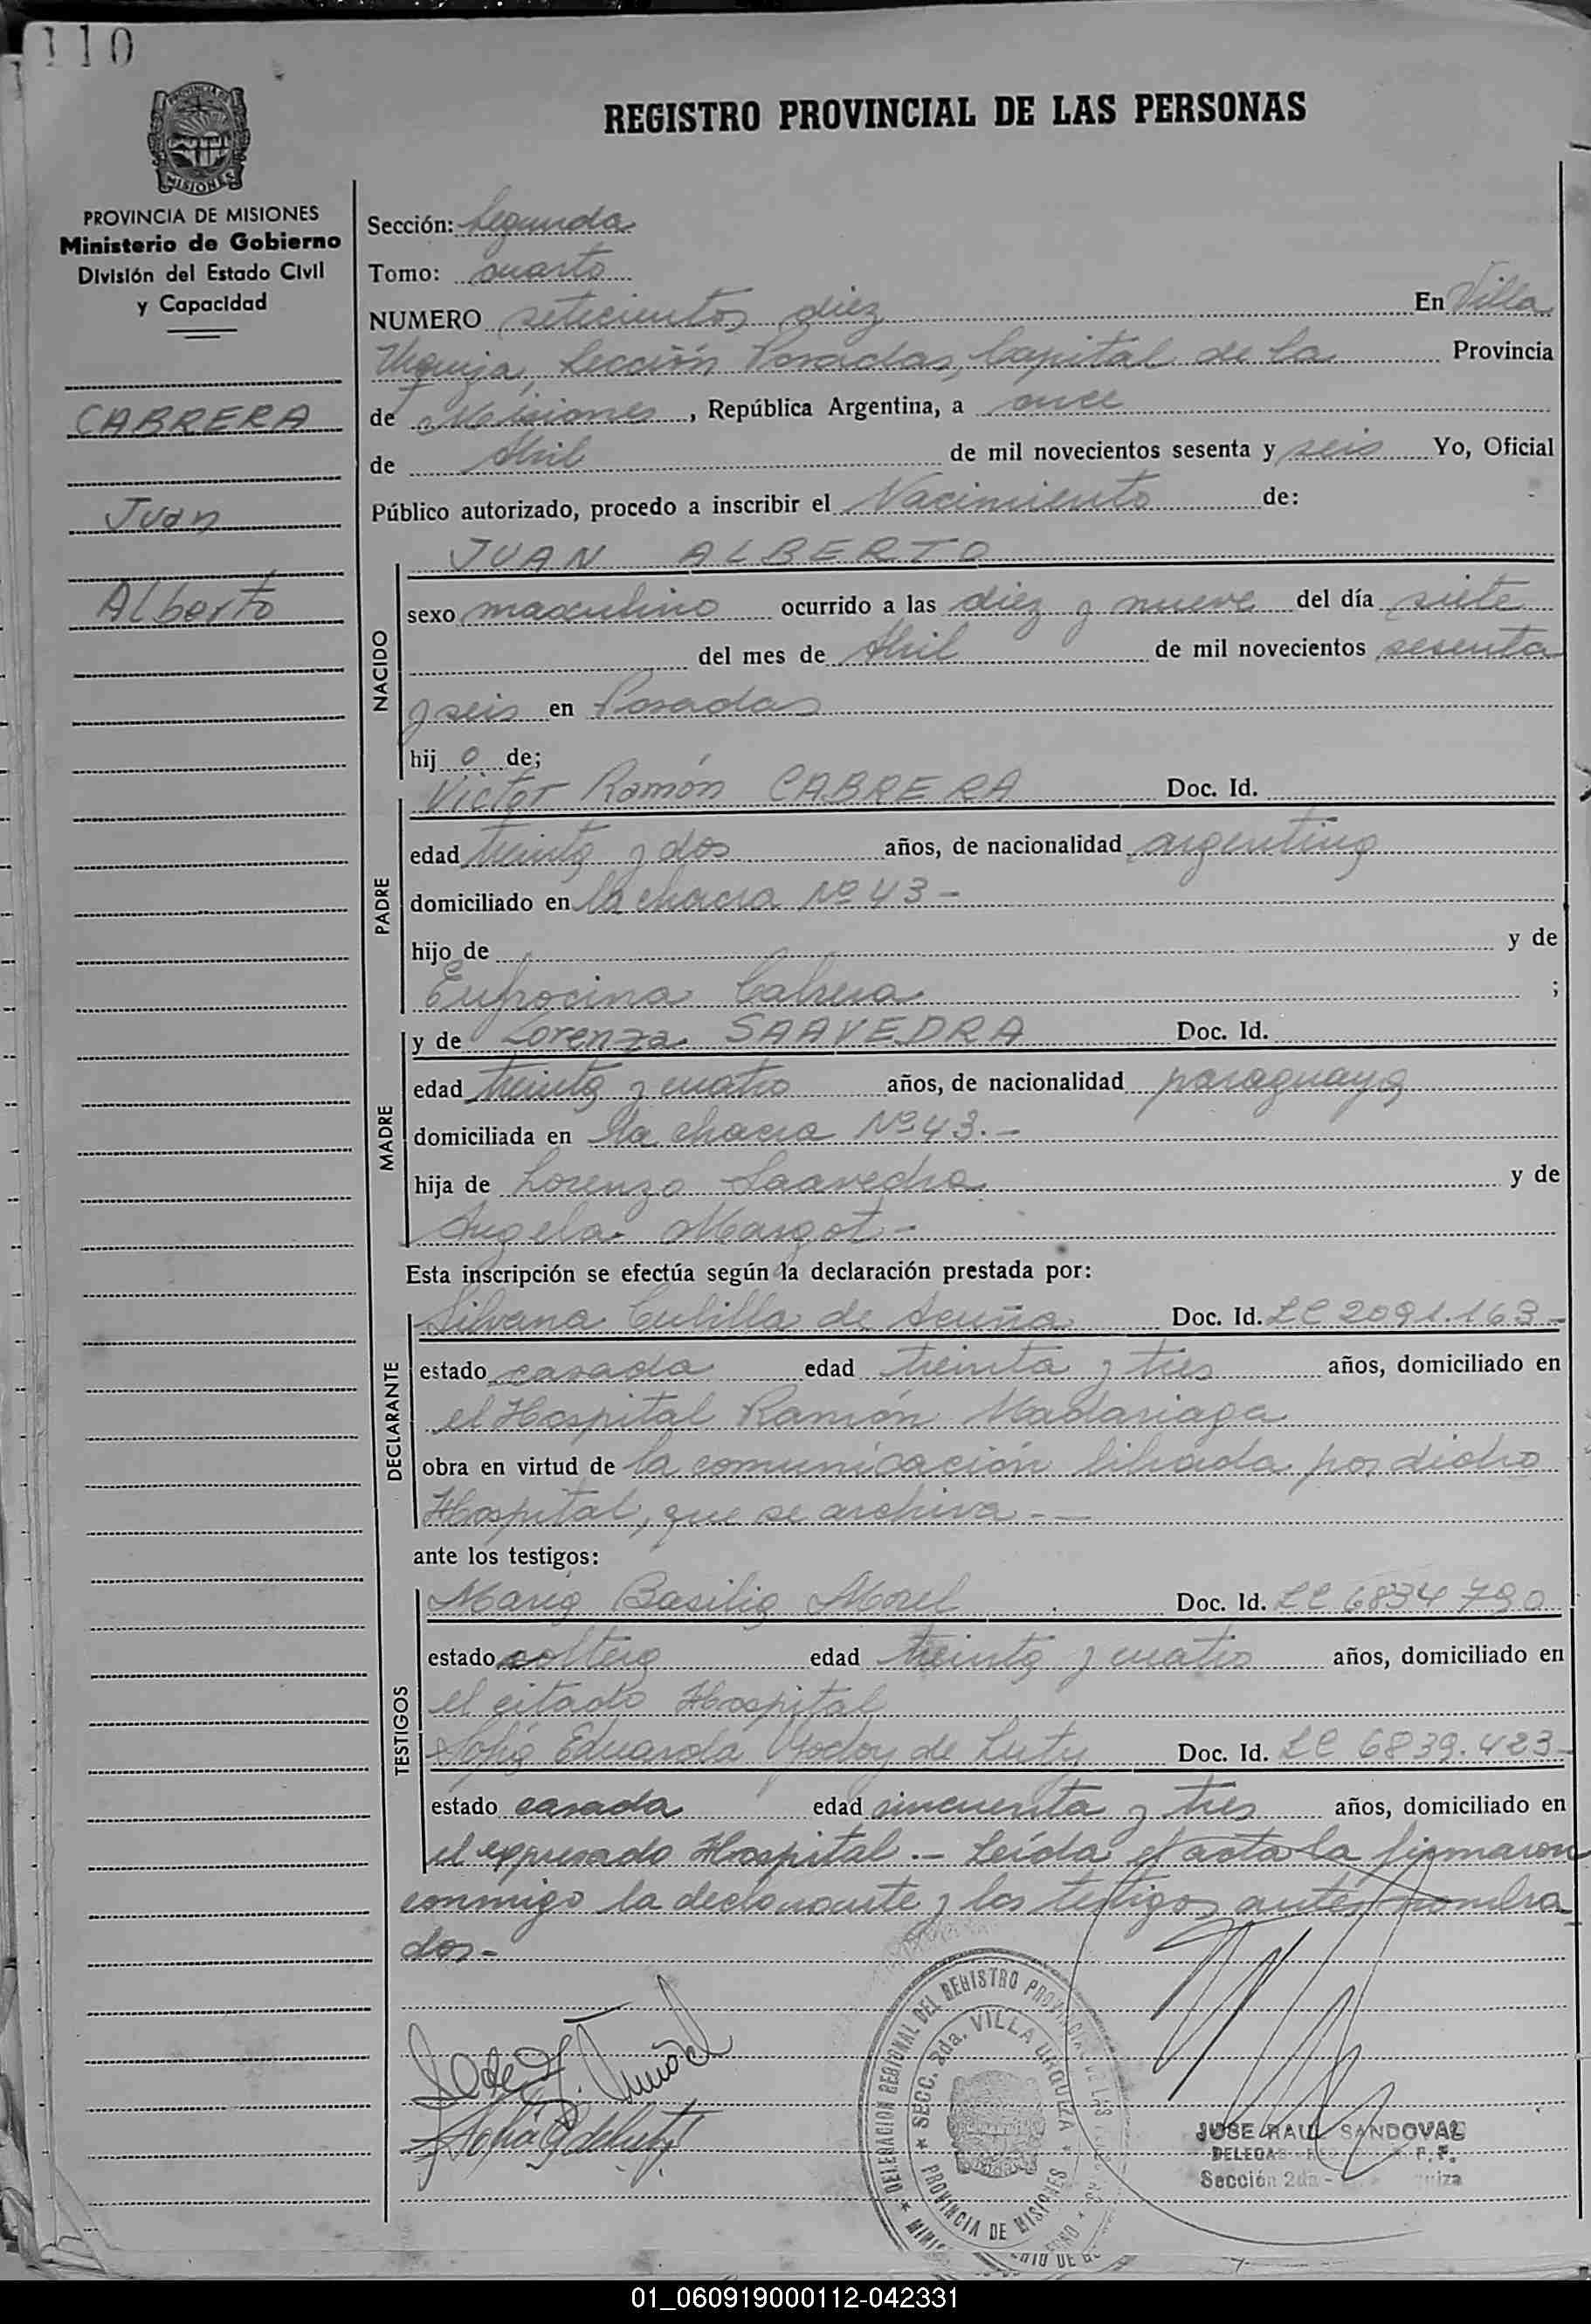 110
PROVINCIA DE MISIONES
Ministerio de Gobierno
División del Estado Civil
y Capacidad
CABRERA
Juan
Alberto
REGISTRO PROVINCIAL DE LAS PERSONAS
Sección: Segunda
Tomo: cuarto
NUMERO setecientos diez En Villa
Urquiza, Sección Posadas, Capital de la Provincia
de Misiones, República Argentina, a once
de Abril de mil novecientos sesenta y seis Yo, Oficial
Público autorizado, procedo a inscribir el Nacimiento de:
NACIDO
JUAN ALBERTO
sexo masculino ocurrido a las diez y nueve del día siete
del mes de Abril de mil novecientos sesenta
y seis en Posadas
hij o de;
PADRE
Víctor Ramón CABRERA Doc. Id.
edad treinta y dos años, de nacionalidad argentina
domiciliado en la chacra Nº 43 -
hijo de y de
Eufrocina Cabrera ;
MADRE
y de Lorenza SAAVEDRA Doc. Id.
edad treinta y cuatro años, de nacionalidad paraguaya
domiciliada en la chacra Nº 43.-
hija de Lorenzo Saavedra y de
Angela Margot -
Esta inscripción se efectúa según la declaración prestada por:
DECLARANTE
Silvana Cubilla de Acuña Doc. Id. LC 2091.163-
estado casada edad treinta y tres años, domiciliado en
el Hospital Ramón Madariaga
obra en virtud de la comunicación librada por dicho
Hospital, que se archiva.-
ante los testigos:
TESTIGOS
María Basilia Morel Doc. Id. LC 6834790
estado soltera edad treinta y cuatro años, domiciliado en
el citado Hospital
Sofía Eduarda Godoy de Luty Doc. Id. LC 6839.423-
estado casada edad sincuenta y tres años, domiciliado en
el expresado Hospital.- Leída el acta la firmaron
conmigo la declarante y los testigos antes nombra
dos-
DELEGACION REGIONAL DEL REGISTRO PROVINCIAL DE LAS
SECC. 2da. VILLA URQUIZA
PROVINCIA DE MISIONES
JOSE RAUL SANDOVAL
Sección 2da -
01_060919000112-042331